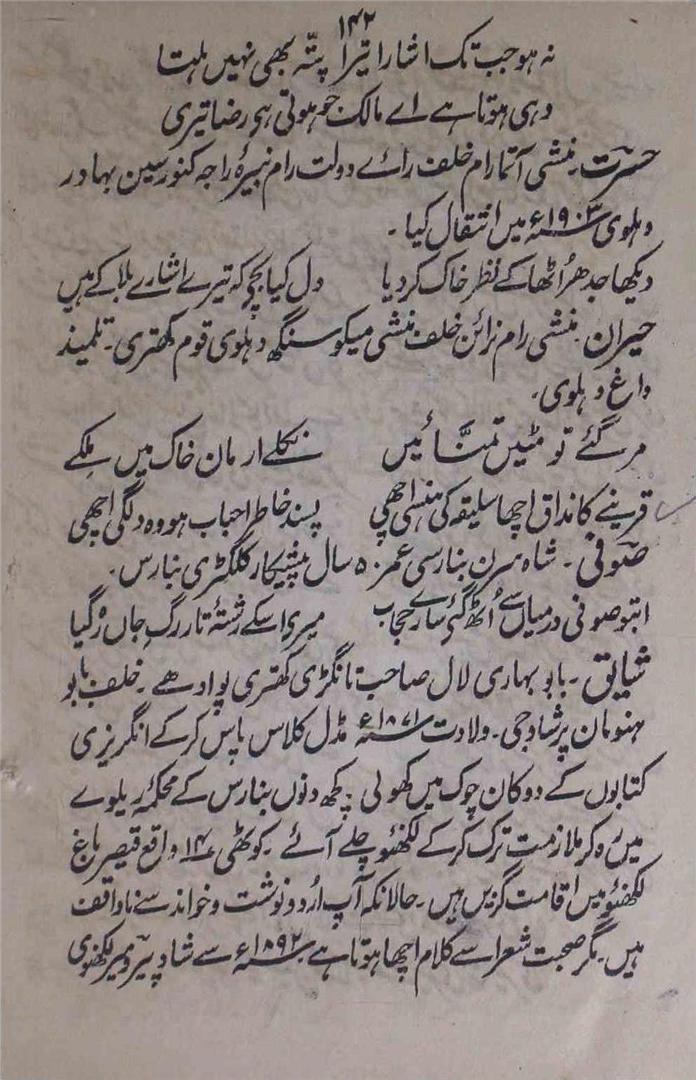 ۱۴۲
نہ ہو جب تک اشارا تیرا پتّہ بھی نہیں ہلتا
وہی ہوتا ہے اے مالک جو ہوتی ہی رضا تیری
حسرت۔ منشی آتمارام خلف رائے دولت رام نبیرۂ راجہ کنور سین بہادر
دہلوی ۱۹۰۳ء میں انتقال کیا۔
دیکھا جدھر اُٹھا کے نظر خاک کر دیا دل کیا بچے کہ تیرے اشارے بلا کے ہیں
حیران۔ منشی رام نرائن خلف منشی میکو سنگھ دہلوی قوم کھتری۔ تلمیذ
داغ دہلوی۔
مر گئے تو مٹیں تمنّائیں نکلے ارمان خاک میں ملکے
قرینے کا مذاق اچھا سلیقہ کی ہنسی اچھی پسند خاطر احباب ہو وہ دلگی اچھی
صوفی۔ شاہ سرن بنارسی عمر ۵۰ سال پیشکار کلکٹری بنارس۔
ابتو صوفی درمیاں سے اُٹھ گئے سارے حجاب میری اسکے رشتۂ تار رگ جاں رہ گیا
شایق۔ بابو بہاری لال صاحب ٹانگڑی کھتری پوادھے۔ خلف بابو
ہنومان پرشاد جی۔ ولادت ۱۸۷۱ء مڈل کلاس پاس کر کے انگریزی
کتابوں کے دوکان چوک میں کھولی۔ کچھ دنوں بنارس کے محکمۂ ریلوے
میں رہ کر ملازمت ترک کر کے لکھنؤ چلے آئے۔ کوٹھی ۱۴ واقع قیصر باغ
لکھنؤ میں اقامت گزیں ہیں۔ حالانکہ آپ اُردو نوشت و خواند سے ناواقف
ہیں۔ مگر صحبت شعرا سے کلام اچھا ہوتا ہے ۱۸۹۲ء سے شاد پیرو میر لکھنوی